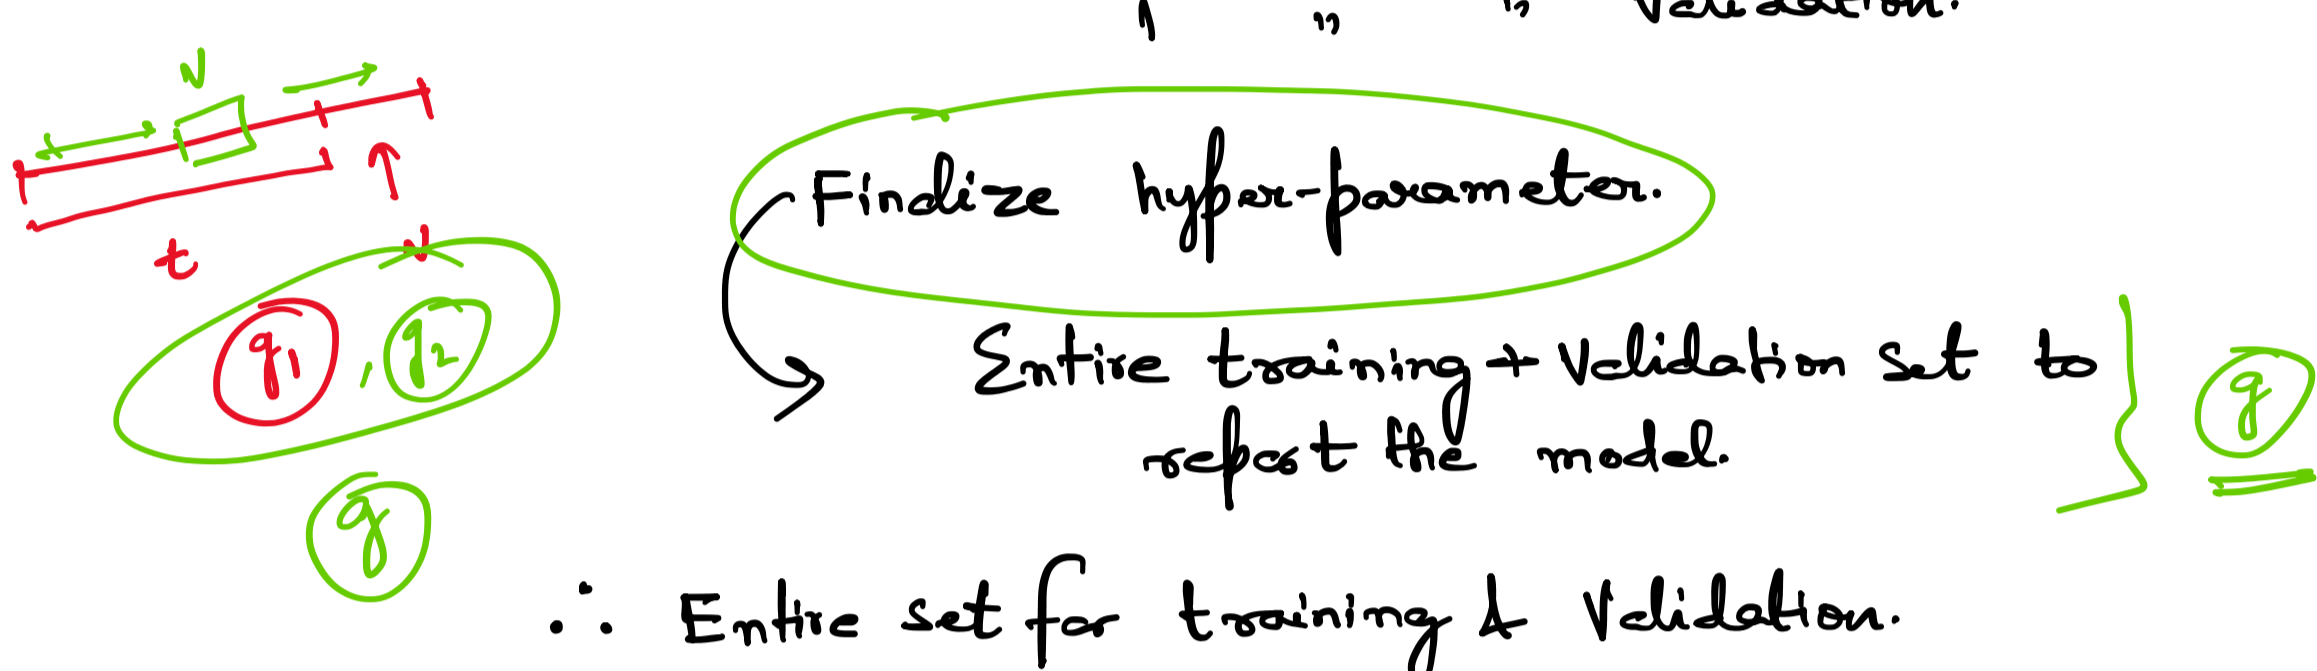 1 " " Validation.
v
Finalize hyper-parameter.
t
v
g1, g2
Entire training + Validation set to
report the model.
g
g
∴ Entire set for training & Validation.